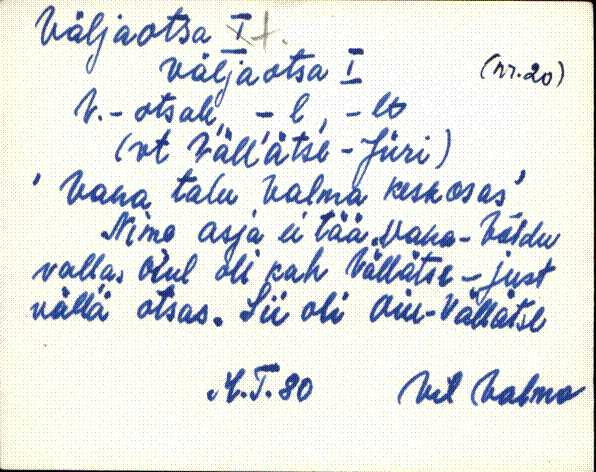 Väljaotsa I t.
Väljaotsa I (nr. 20)
V.-otsah, -l, -lt
(vt Väll'ätse-Jüri)
'Vana talu Valma keskosas'
Nime asja ei tää. Vana-Võidu
vallas Oiul oli kah Vällätse - just
vällä otsas. Sii oli Oiu-Vällätse
M.T. 80 Vil Valma